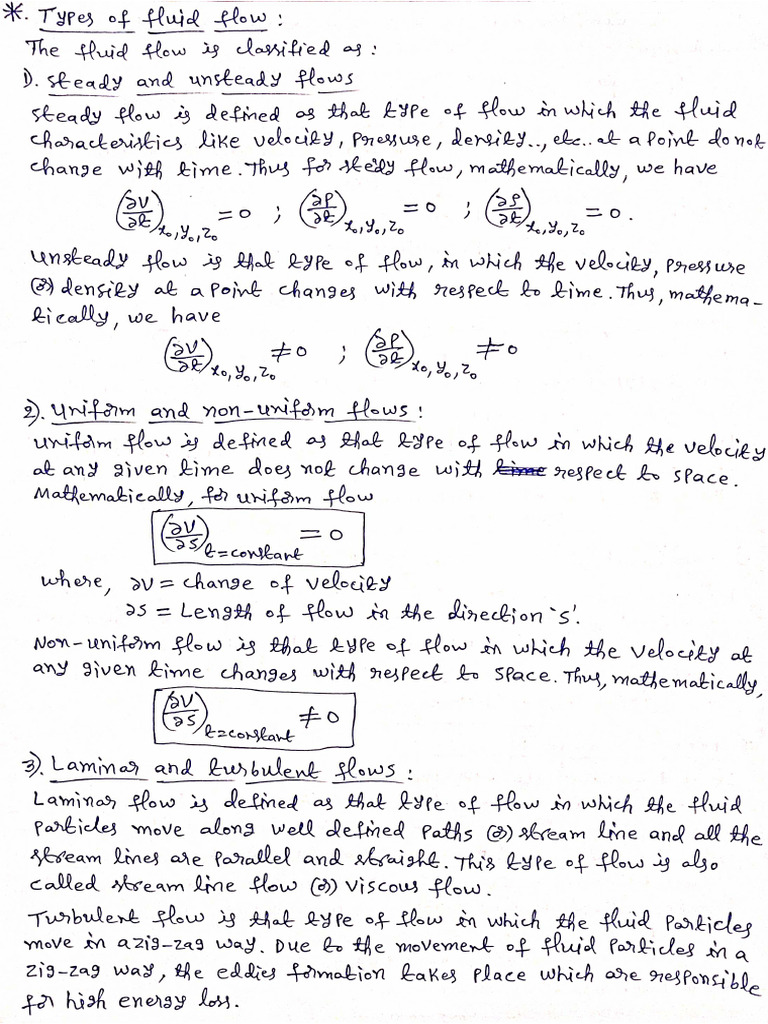 *. Types of fluid flow :
The fluid flow is classified as :
1). Steady and unsteady flows
Steady flow is defined as that type of flow in which the fluid
characteristics like velocity, pressure, density.., etc.. at a point do not
change with time. Thus for steidy flow, mathematically, we have
(∂V/∂t)x₀,y₀,z₀ = 0 ; (∂P/∂t)x₀,y₀,z₀ = 0 ; (∂ρ/∂t)x₀,y₀,z₀ = 0.
Unsteady flow is that type of flow, in which the velocity, pressure
(or) density at a point changes with respect to time. Thus, mathema-
tically, we have
(∂V/∂t)x₀,y₀,z₀ ≠ 0 ; (∂P/∂t)x₀,y₀,z₀ ≠ 0
2). Uniform and non-uniform flows :
Uniform flow is defined as that type of flow in which the velocity
at any given time does not change with time respect to space.
Mathematically, for uniform flow
(∂V/∂S)t=constant = 0
where, ∂V = change of velocity
∂S = Length of flow in the direction 's'.
Non-uniform flow is that type of flow in which the velocity at
any given time changes with respect to space. Thus, mathematically,
(∂V/∂S)t=constant ≠ 0
3). Laminar and turbulent flows :
Laminar flow is defined as that type of flow in which the fluid
particles move along well defined paths (or) stream line and all the
stream lines are parallel and straight. This type of flow is also
called stream line flow (or) viscous flow.
Turbulent flow is that type of flow in which the fluid particles
move in a zig-zag way. Due to the movement of fluid particles in a
zig-zag way, the eddies formation takes place which are responsible
for high energy loss.